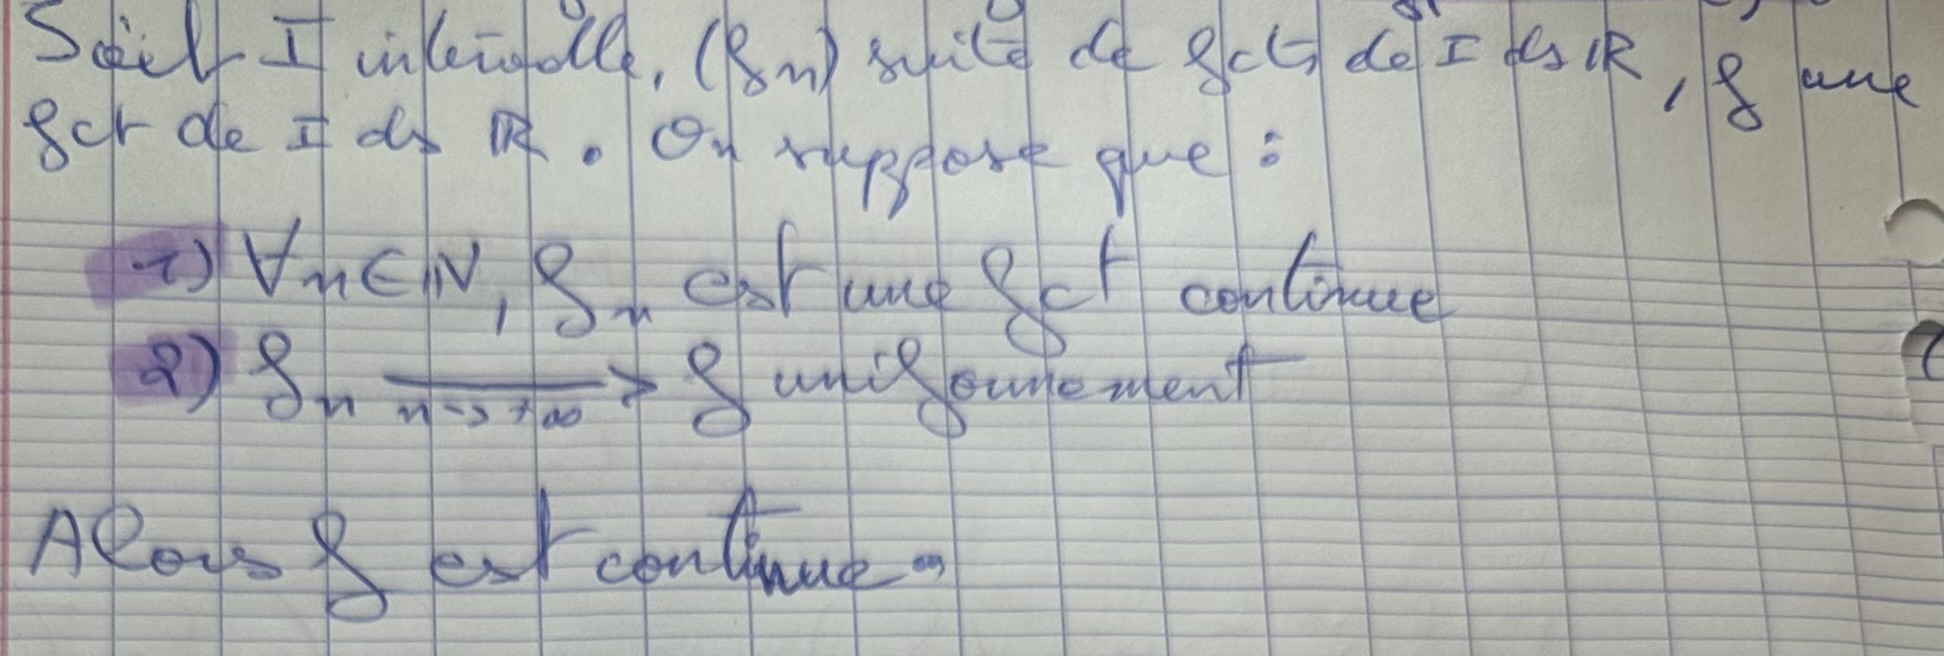 Soit I intervalle, (fn) suite de fcts de I ds ℝ, f une
fct de I ds ℝ. On suppose que :
1) ∀n∈ℕ, fn est une fct continue
2) fn ⟶ f uniformément
n→+∞
Alors f est continue.